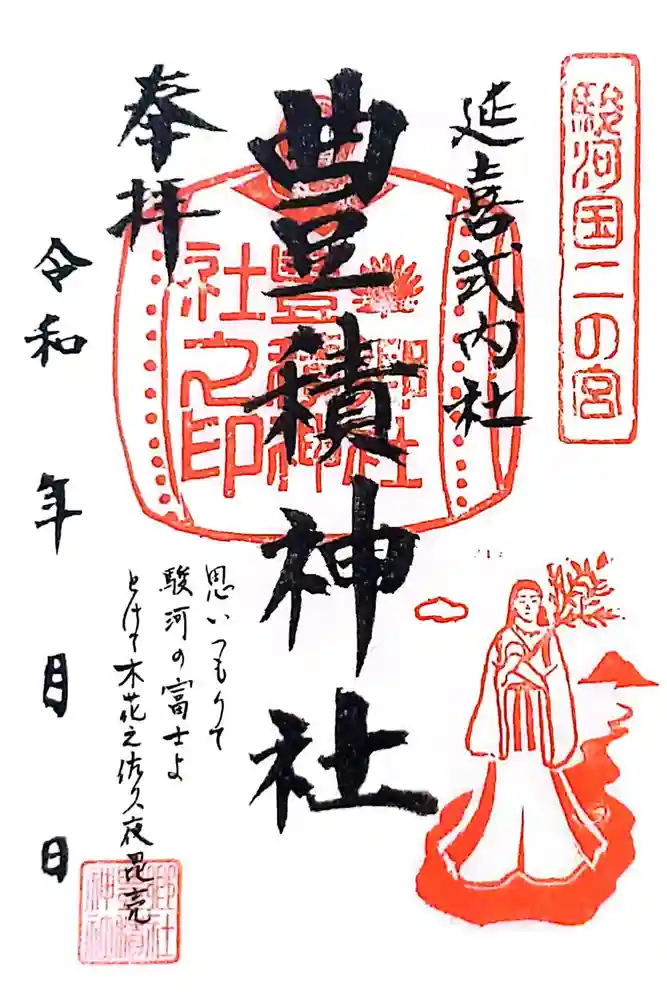 駿河国二の宮
延喜式内社
豊積神社
郷社
豊積神
社之印
奉拝
思いつもりて
駿河の富士よ
とけて木花之佐久夜毘売
郷社
豊積
神社
令和 年 月 日